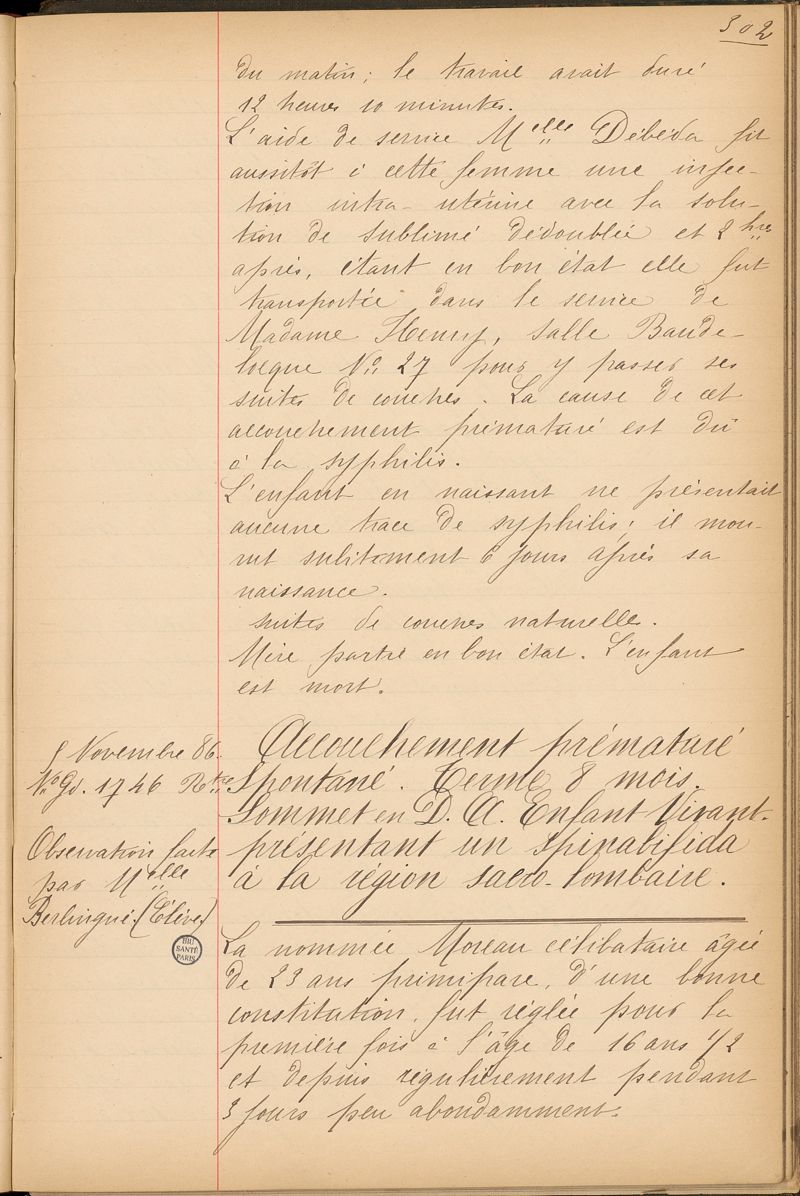 302
du matin ; le travail avait duré
12 heures 10 minutes.
L'aide de service Melle Débéda fit
aussitôt à cette femme une injec-
tion intra-utérine avec la solu-
tion de sublimé dédoublée et 2 hres
après, étant en bon état elle fut
transportée dans le service de
Madame Henry, salle Baude-
locque No 27 pour y passer ses
suites de couches. La cause de cet
accouchement prématuré est dû
à la syphilis.
L'enfant en naissant ne présentait
aucune trace de syphilis ; il mou-
rut subitement 6 jours après sa
naissance.
suites de couches naturelles.
Mère partie en bon état. L'enfant
est mort.
Novembre 86.
No Gd. 1746
Observation faite
par Melle
Berlingué. (Elève)
BIU
SANTÉ
PARIS
Accouchement prématuré
Spontané. Terme 8 mois.
Sommet en D. A. Enfant Vivant.
présentant un Spinabifida
à la région sacro-lombaire.
La nommée Moreau célibataire âgée
de 23 ans primipare, d'une bonne
constitution, fut réglée pour la
première fois à l'âge de 16 ans 1/2
et depuis régulièrement pendant
3 jours peu abondamment.